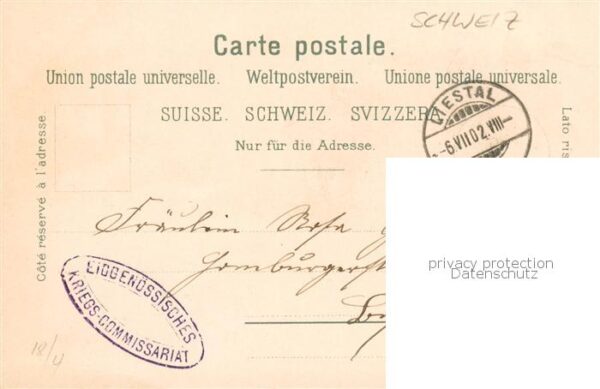 SCHWEIZ
Carte postale.
Union postale universelle. Weltpostverein. Unione postale universale.
SUISSE. SCHWEIZ. SVIZZERA
Nur für die Adresse.
LIESTAL
-6.VII.02.VIII-
Côté réservé à l'adresse
Lato ris
Fräulein Rosa
Homburgerst
privacy protection
Datenschutz
EIDGENÖSSISCHES
KRIEGS-COMMISSARIAT
18/4